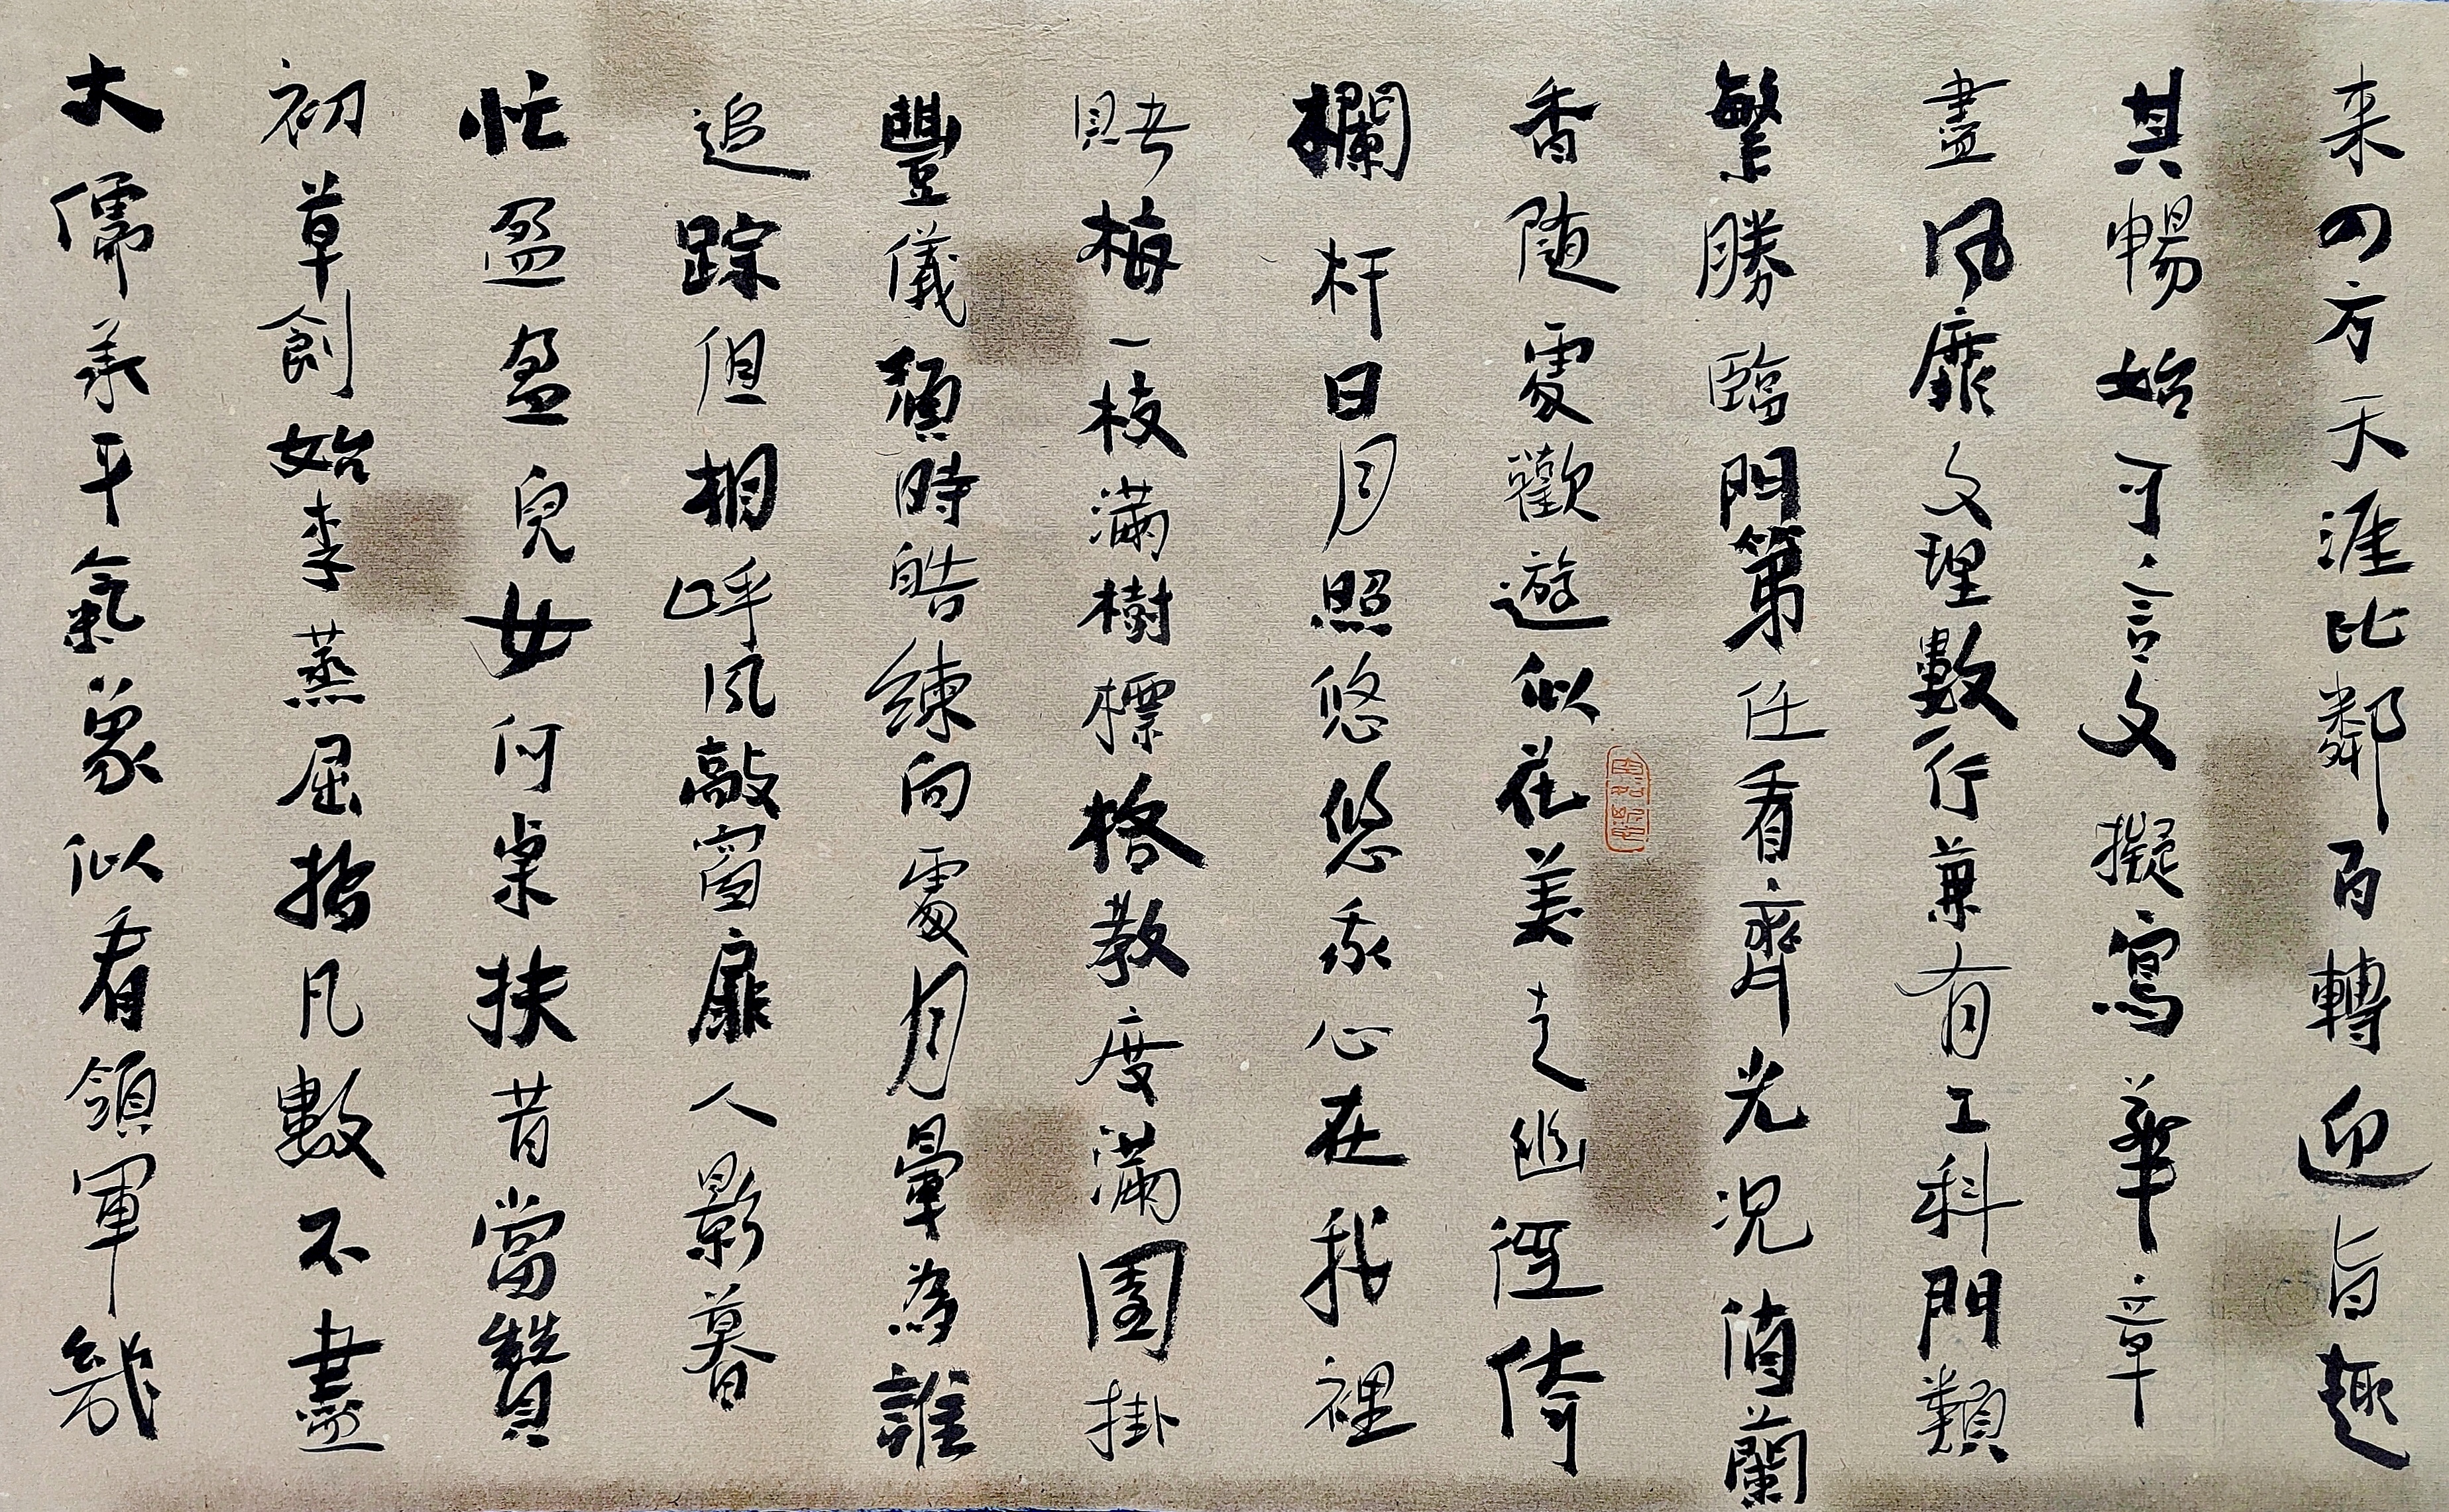 来四方天涯比鄰百轉迎旨趣
其暢始可言文擬寫華章
盡風靡文理數行兼有工科門類
繁勝臨門第任看齊光況值蘭
香随處歡遊似花美走幽徑倚
欄杆日月照悠悠永心在我裡
賭梅一枝满樹標格教度满園掛
豐儀須時皓練向處月暈為誰
追踪但相呼風敲窗扉人影暮
忙盈盈兒女何桌扶昔當贊
初草創始李蒸屈指凡數不盡
大儒義平氣象似看領軍幾